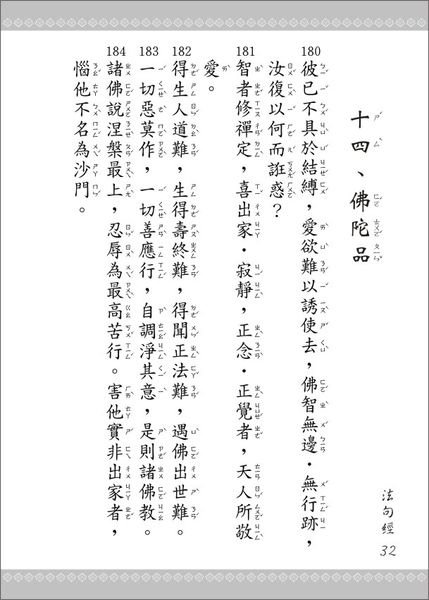 十四、佛陀品
180 彼已不具於結縛，愛欲難以誘使去，佛智無邊．無行跡，
汝復以何而誑惑？
181 智者修禪定，喜出家．寂靜，正念．正覺者，天人所敬
愛。
182 得生人道難，生得壽終難，得聞正法難，遇佛出世難。
183 一切惡莫作，一切善應行，自調淨其意，是則諸佛教。
184 諸佛說涅槃最上，忍辱為最高苦行。害他實非出家者，
惱他不名為沙門。
法句經
32